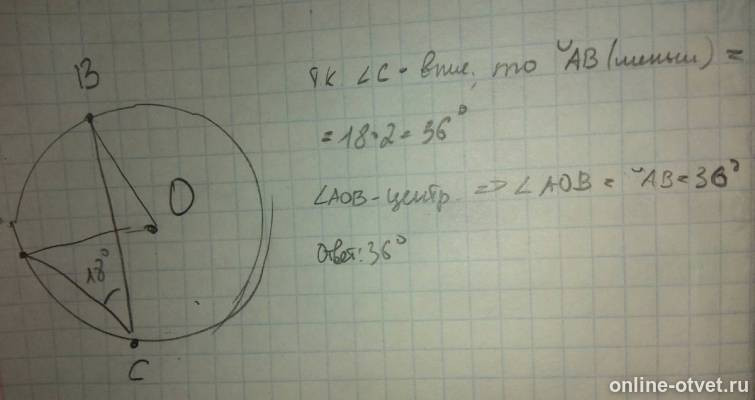 B
O
18°
C
тк ∠C - впис, то ◡AB (меньш) =
= 18·2 = 36°
∠AOB - центр. => ∠AOB = ◡AB = 36°
Ответ: 36°
online-otvet.ru